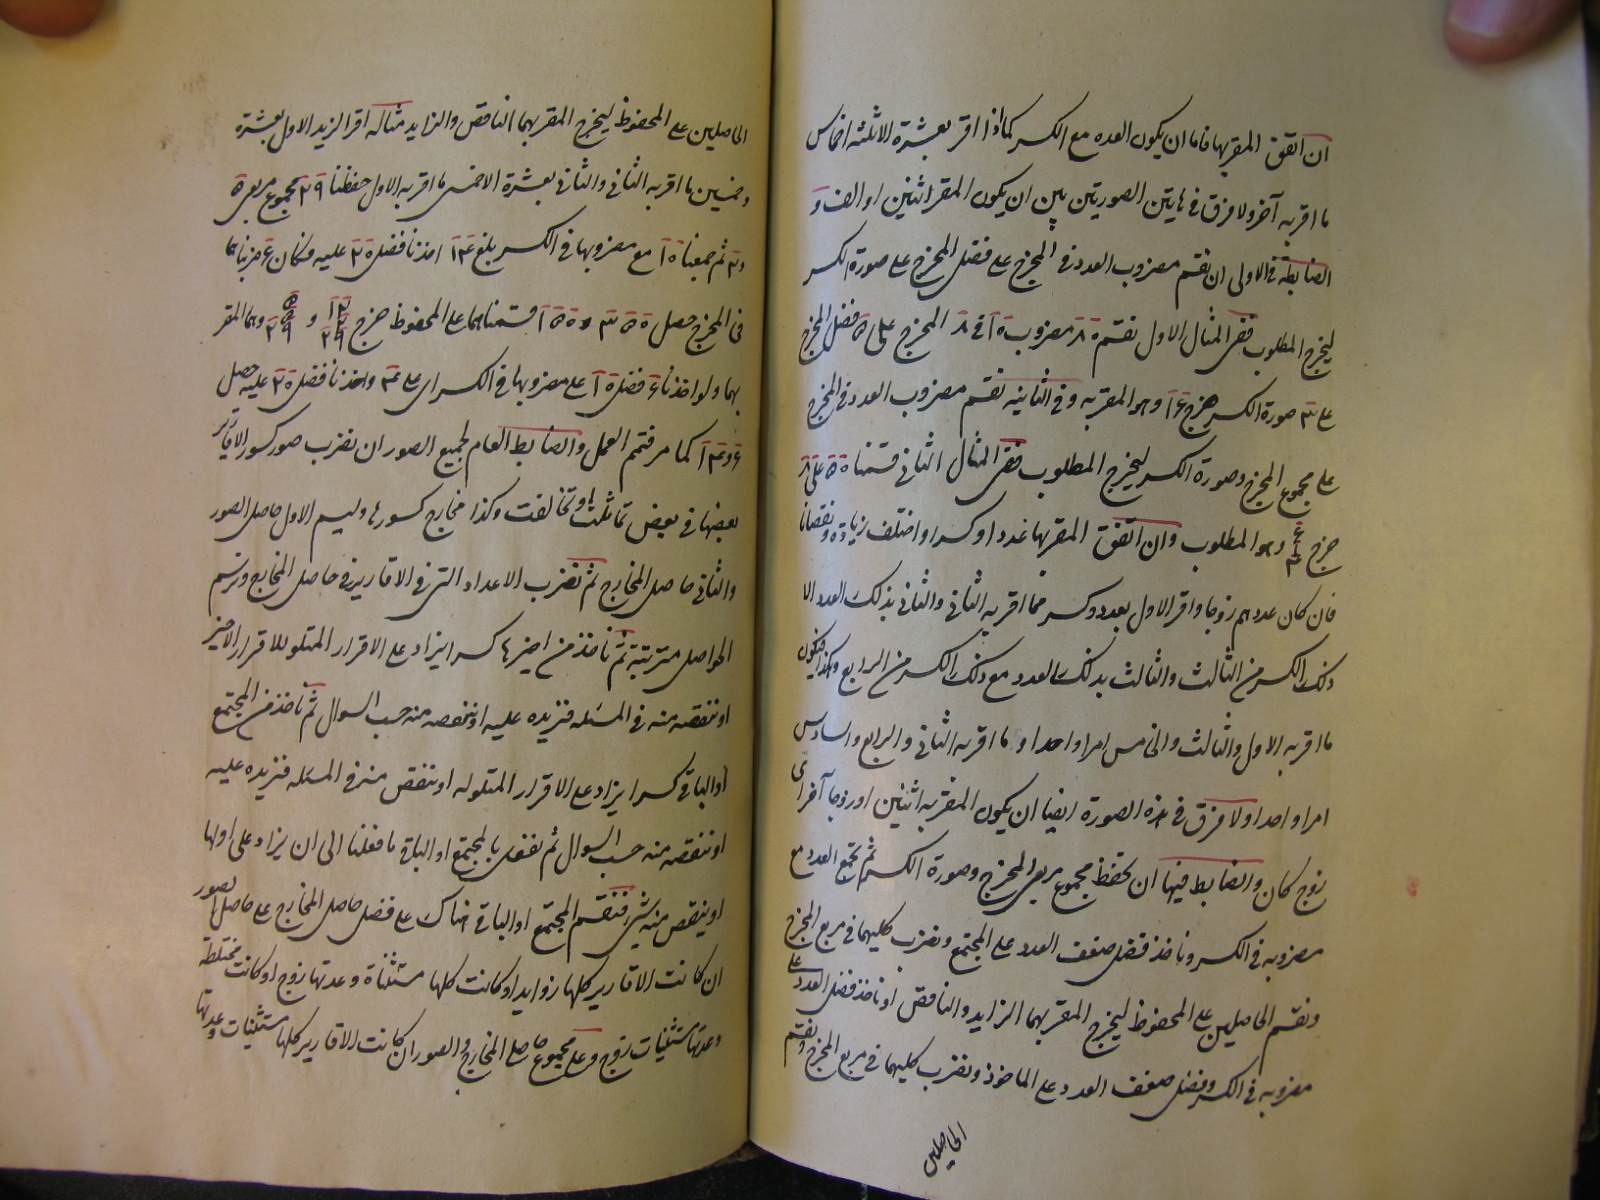 ان اتفق المقر بها فاما ان يكون العدد مع الكسر كما اذا اقر بعشرة الا ثلثة اخماس
ما اقر به آخر ولا فرق فى هاتين الصورتين بين ان يكون المقر اثنين او الف و
الضابطة فى الاولى ان نقسم مضروب العدد فى المخرج على فضل المخرج على صورة الكسر
ليخرج المطلوب ففى المثال الاول نقسم ٨٠ مضروب ١٠ فى ٨ المخرج على ٥ فضل المخرج
على ٣ صورة الكسر خرج ١٦ وهو المقر به وفى الثانية نقسم مضروب العدد فى المخرج
على مجموع المخرج وصورة الكسر ليخرج المطلوب ففى المثال الثانى قسمنا ٥٥ على ٨
خرج وهو المطلوب وان اتفق المقر بها عددا وكسرا واختلف زيادة ونقصانا
فان كان عددهم زوجا واقر الاول بعدد وكسر مما اقر به الثانى والثانى بذلك العدد الا
ذلك الكسر من الثالث والثالث بذلك العدد مع ذلك الكسر من الرابع وهكذا فيكون
ما اقر به الاول والثالث والخامس امرا واحدا وما اقر به الثانى والرابع والسادس
امرا واحدا ولا فرق فى هذه الصورة ايضا ان يكون المقر به اثنين او زوجا آخر اى
زوج كان والضابط فيها ان تحفظ مجموع مربعى المخرج وصورة الكسر ثم تجمع العدد مع
مضروبه فى الكسر وناخذ فضل ضعف العدد على المجتمع ونضرب كليهما فى مربع المخرج
ونقسم الحاصلين على المحفوظ ليخرج المقر بهما الزايد والناقص او ناخذ فضل العدد على
مضروبه فى الكسر وفضل ضعف العدد على الماخوذ ونضرب كليهما فى مربع المخرج ونقسم
الحاصلين
الحاصلين على المحفوظ ليخرج المقر بهما الناقص والزايد مثاله اقر الزيد الاول بعشرة
وخمسين ما اقر به الثانى والثانى بعشرة الا خمسى ما اقر به الاول حفظنا ٢٩ مجموع مربعى ٥
و٢ ثم جمعنا ١٠ مع مضروبها فى الكسر بلغ ١٤ اخذنا فضل ٢٠ عليه وكان ٦ ضربناهما
فى المخرج حصل ٣٥٠ و ١٥٠ قسمناهما على المحفوظ خرج و وهما المقر
بهما ولو اخذنا ٦ فضل ١٠ على مضروبها فى الكسر اى على ٤ واخذنا فضل ٢٠ عليه حصل
٦ و ١٤ كما مر فتمم العمل والضابط العام لجميع الصور ان نضرب صور كسور الاقارير
بعضها فى بعض تماثلت او تخالفت وكذا مخارج كسورها وليسم الاول حاصل الصور
والثانى حاصل المخارج ثم نضرب الاعداد التى فى الاقارير فى حاصل المخارج ونرسم
الحواصل مترتبة ثم ناخذ من اخيرها كسرا يزاد على الاقرار المتلو للاقرار الاخير
او ننقصه منه فى المسئلة فنزيده عليه او ننقصه منه حسب السوال ثم ناخذ من المجتمع
او الباقى كسرا يزاد على الاقرار المتلو له او ننقص منه فى المسئلة فنزيده عليه
او ننقصه منه حسب السوال ثم نفعل بالمجتمع او الباقى ما فعلنا الى ان يزاد على اولها
او ينقص منه شئ فنقسم المجتمع او الباقى هناك على فضل حاصل المخارج على حاصل الصور
ان كانت الاقارير كلها زوايد او كانت كلها مستثناة وعدتها زوج او كانت مختلطة
وعدة مستثنيات زوج وعلى مجموع حاصل المخارج والصور ان كانت الاقارير كلها مستثنيات وعدتها